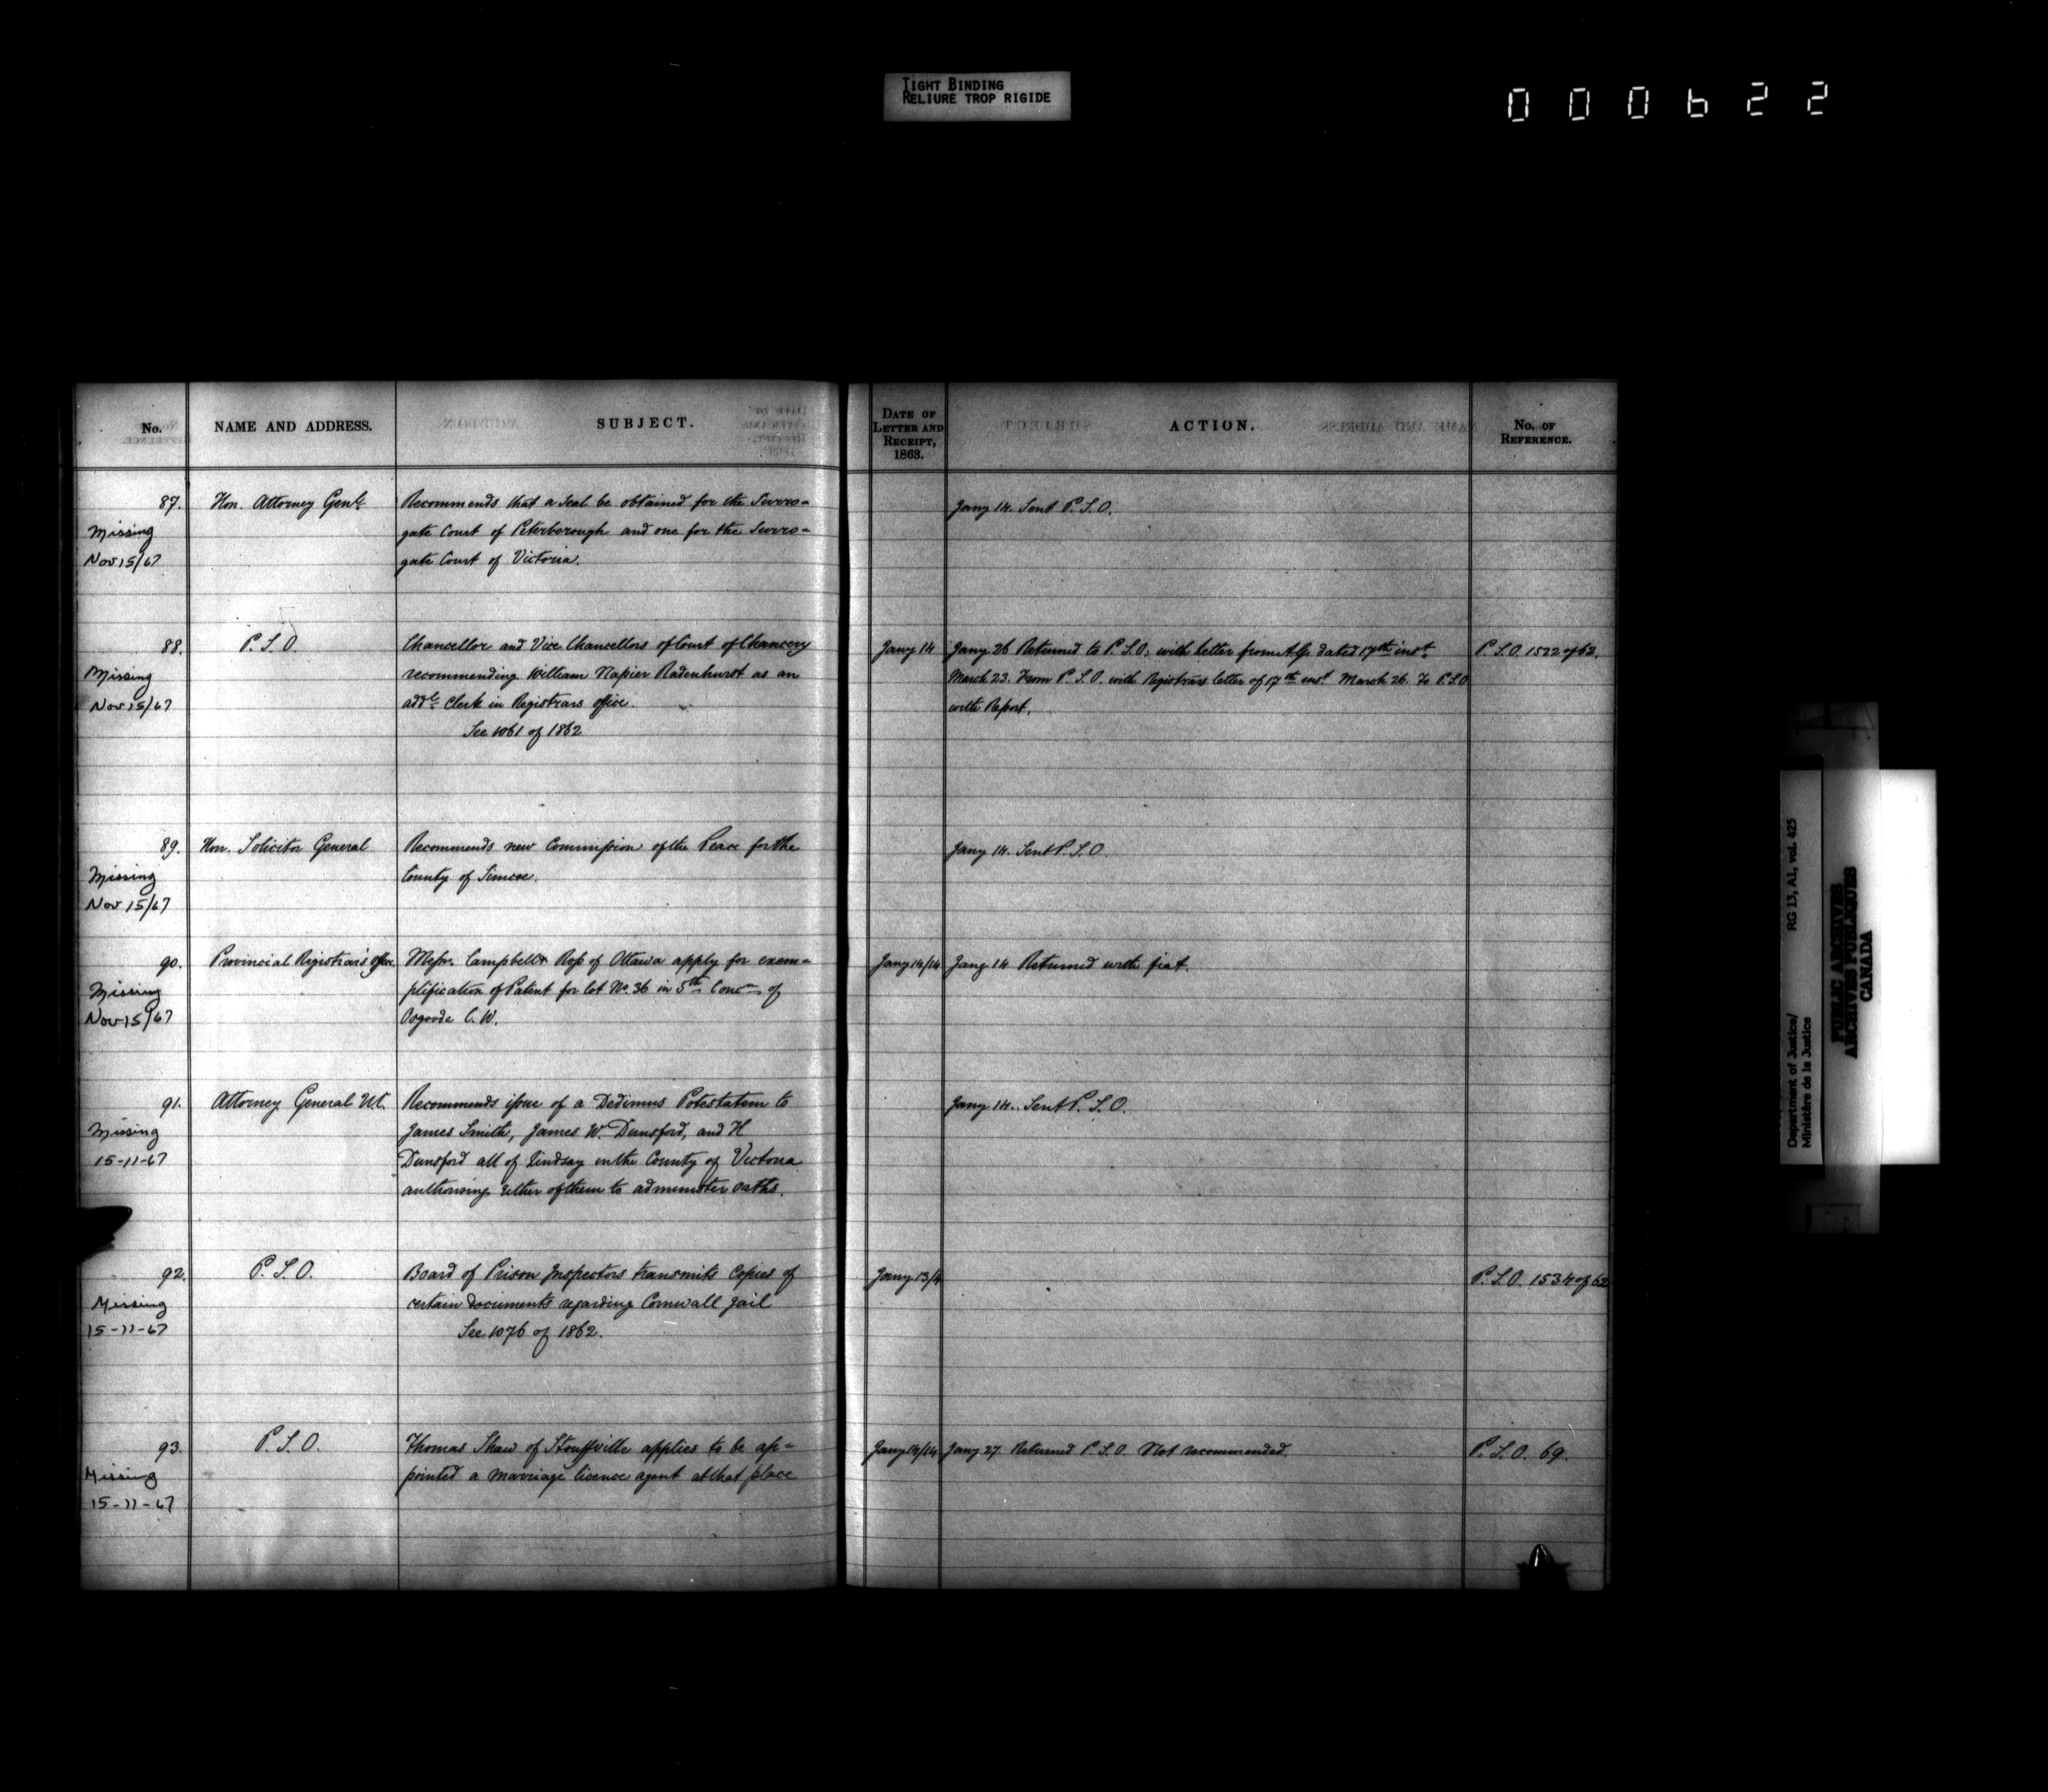 TIGHT BINDING
RELIURE TROP RIGIDE
000622
No.
NAME AND ADDRESS.
SUBJECT.
DATE OF
LETTER AND
RECEIPT,
1863.
ACTION.
No. OF
REFERENCE.
87.
Missing
Nov 15/67
Hon. Attorney Genl.
Recommends that a seal be obtained for the Surro-
gate Court of Peterborough and one for the Surro-
gate Court of Victoria.
Jany 14. Sent P.S.O.
88.
Missing
Nov 15/67
P.S.O.
Chancellor and Vice Chancellors of Court of Chancery
recommending William Napier Radenhurst as an
addl. Clerk in Registrars office.
See 1061 of 1862
Jany 14
Jany 26 Returned to P.S.O. with letter from A.G. dated 17th inst.
March 23. From P.S.O. with Registrars letter of 17th inst. March 26. To P.S.O
with Report.
P.S.O. 1522 of 62.
89.
Missing
Nov 15/67
Hon. Solicitor General
Recommends new Commission of the Peace for the
County of Simcoe.
Jany 14. Sent P.S.O.
90.
Missing
Nov 15/67
Provincial Registrar's office.
Messrs. Campbell & Ross of Ottawa apply for exem-
plification of Patent for lot No. 36 in 5th Concn of
Osgoode C.W.
Jany 14/14
Jany 14 Returned with fiat.
91.
Missing
15-11-67
Attorney General U.C.
Recommends issue of a Dedimus Potestatem to
James Smith, James W. Dunsford, and H
Dunsford all of Lindsay in the County of Victoria
authorising either of them to administer oaths.
Jany 14. Sent P.S.O.
92.
Missing
15-11-67
P.S.O.
Board of Prison Inspectors transmits Copies of
certain documents regarding Cornwall Jail
See 1076 of 1862.
Jany 13/4
P.S.O. 1534 of 62
93.
Missing
15-11-67
P.S.O.
Thomas Shaw of Stouffville applies to be ap-
pointed a marriage licence agent at that place
Jany 14/14
Jany 27. Returned P.S.O. Not recommended.
P.S.O. 69.
Department of Justice/ RG 13, A1, vol. 425
Ministère de la Justice
PUBLIC ARCHIVES
ARCHIVES PUBLIQUES
CANADA